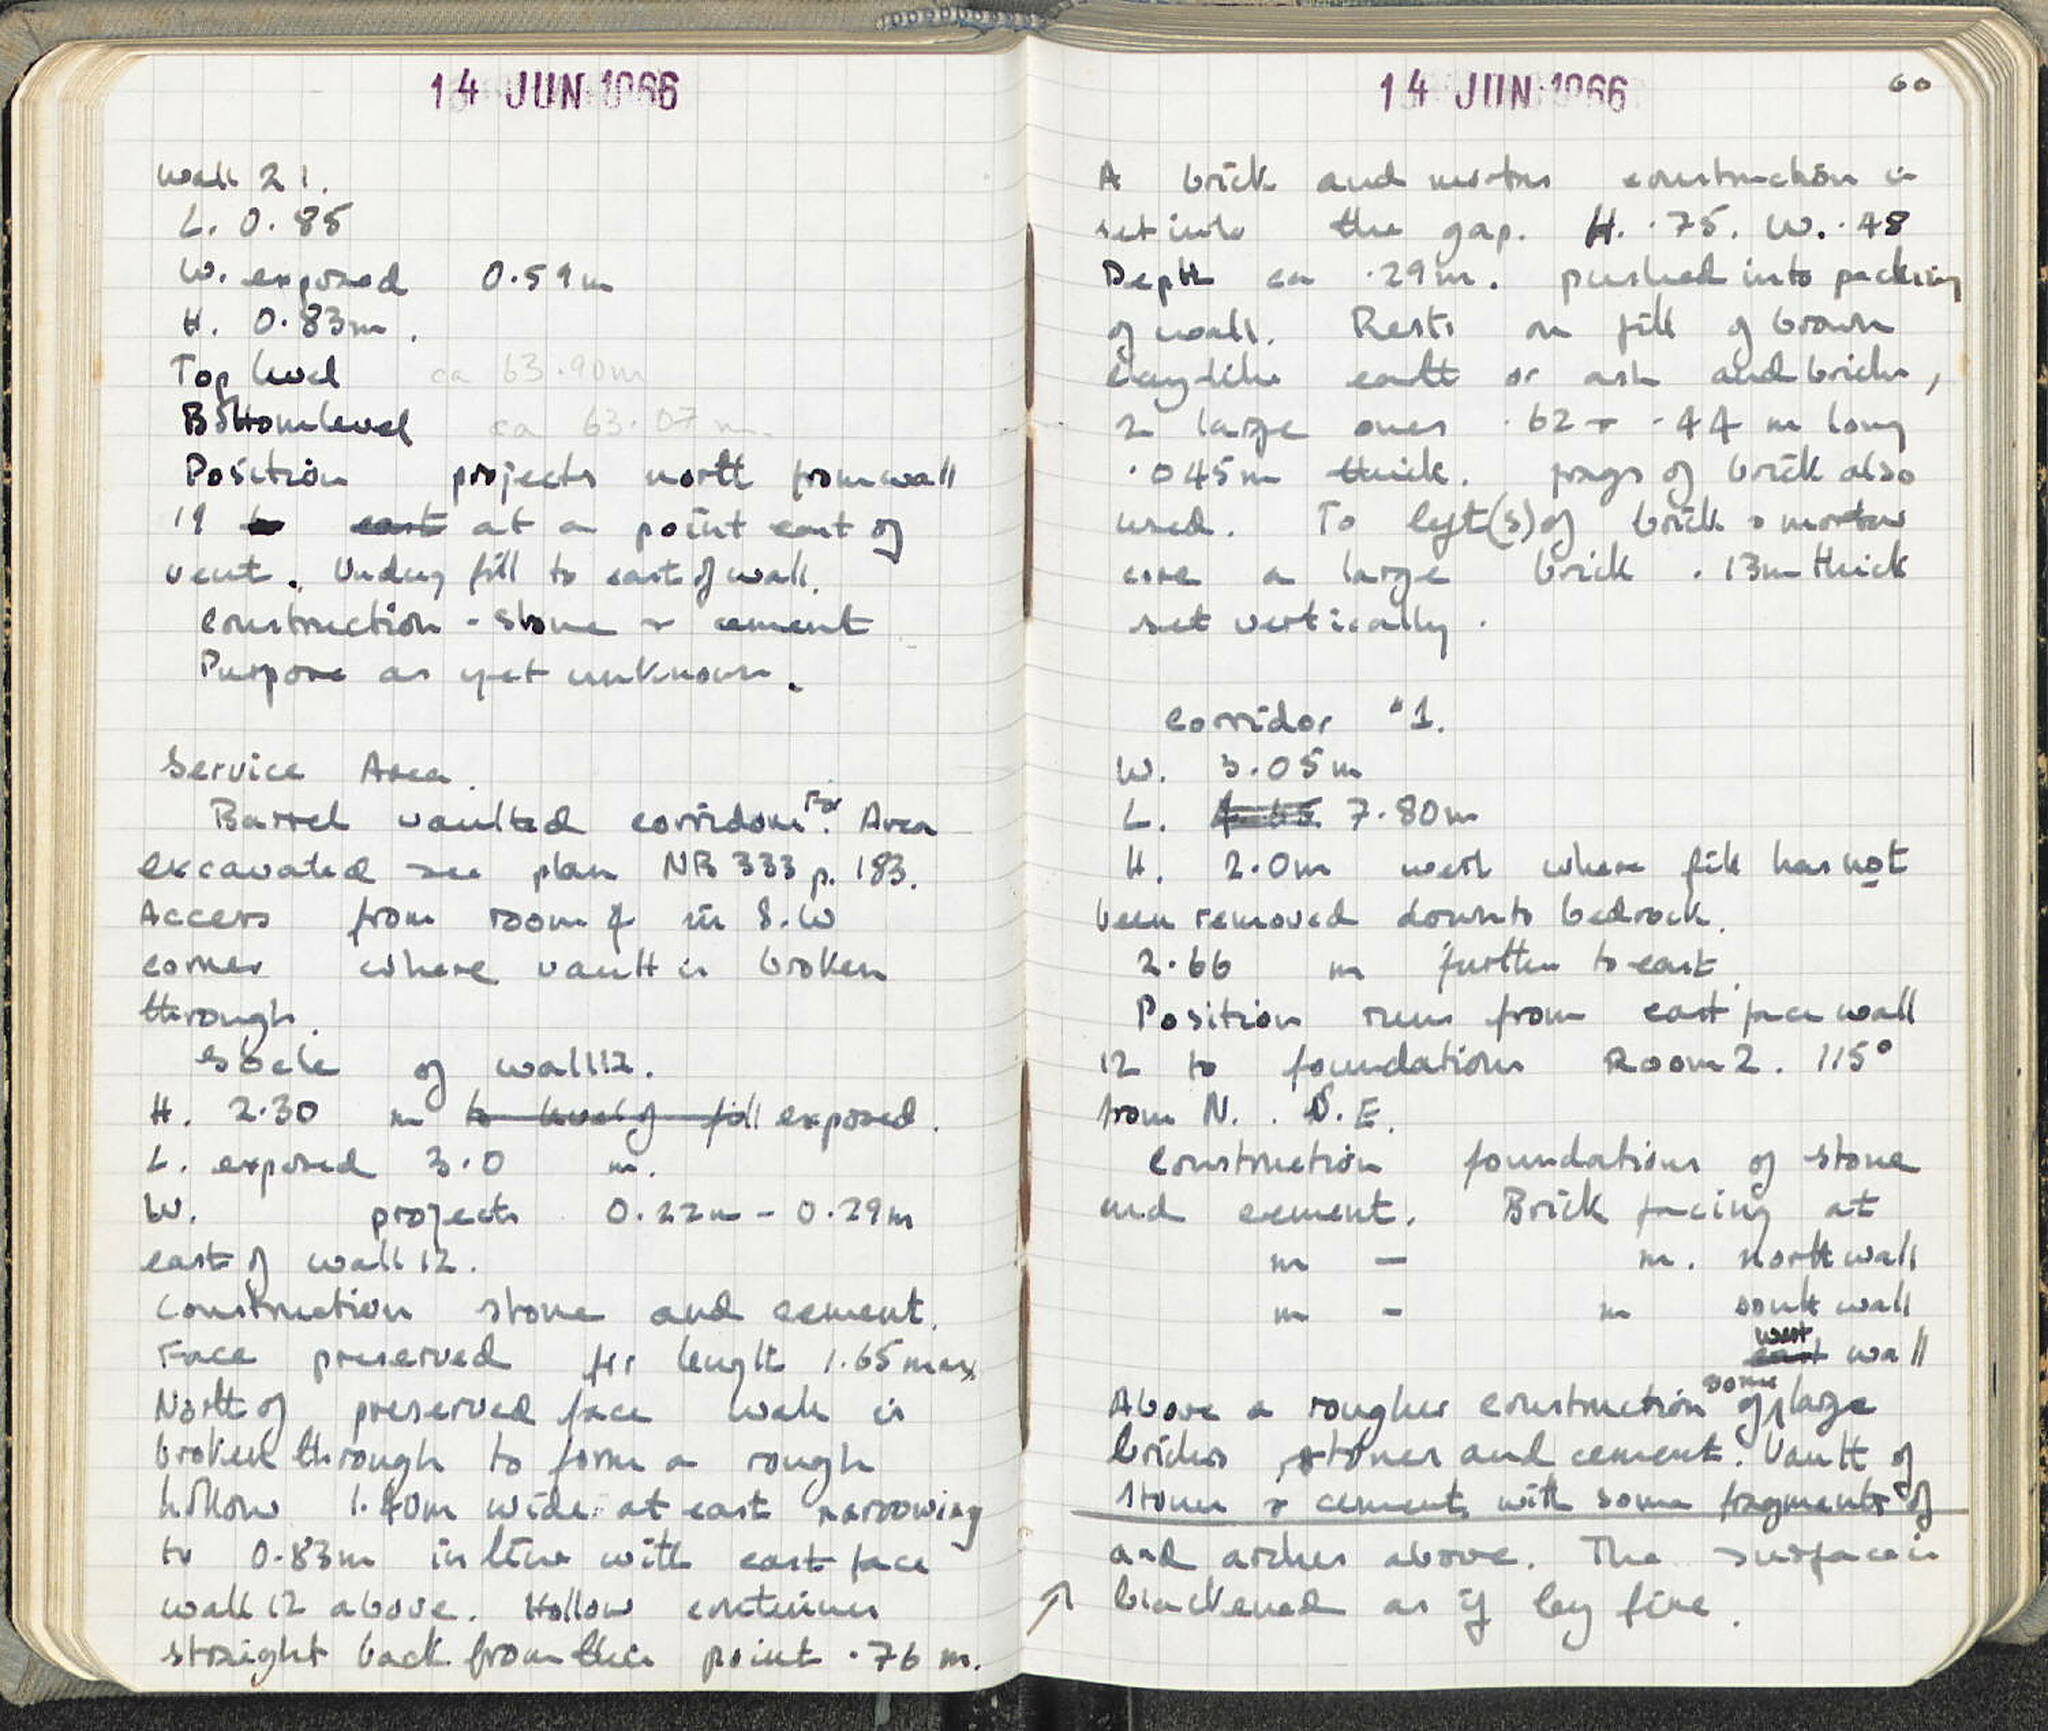 14 JUN 1966
Wall 21.
L. 0.85
W. exposed 0.59m
H. 0.83m.
Top level ca 63.90m
Bottom level ca 63.07m.
Position projects north from wall
19 to east at a point east of
vent. Under fill to east of wall.
Construction - stone + cement
Purpose as yet unknown.
Service Area.
Barrel vaulted corridors. For Area
excavated see plan NB 333 p. 183.
Access from room in S.W
corner where vault is broken
through.
Socle of wall 12.
H. 2.30 m to level of fill exposed.
L. exposed 3.0 m.
W. projects 0.22m - 0.29m
east of wall 12.
Construction stone and cement.
Face preserved for length 1.65 max
North of preserved face wall is
broken through to form a rough
hollow 1.40m wide at east narrowing
to 0.83m in line with east face
wall 12 above. Hollow continues
straight back from this point .76 m.
14 JUN 1966
60
A brick and mortar construction is
set into the gap. H. .75. W. .48
Depth ca .29m. pushed into packing
of wall. Rests on fill of brown
claylike earth or ash and bricks,
2 large ones .62 + .44 m long
.045m thick. frags of brick also
used. To left (s) of brick + mortar
core a large brick .13m thick
set vertically.
Corridor #1.
W. 3.05m
L. 7.80m
H. 2.0m west where fill has not
been removed down to bedrock.
2.66 m further to east.
Position runs from east face wall
12 to foundations Room 2. 115°
from N. . S.E.
Construction foundations of stone
and cement. Brick facing at
m - m. north wall
m - m south wall
west
east wall
Above a rougher construction of some large
bricks, stones and cement. Vault of
stones + cement, with some fragments of
and arches above. The surface is
↗ blackened as if by fire.